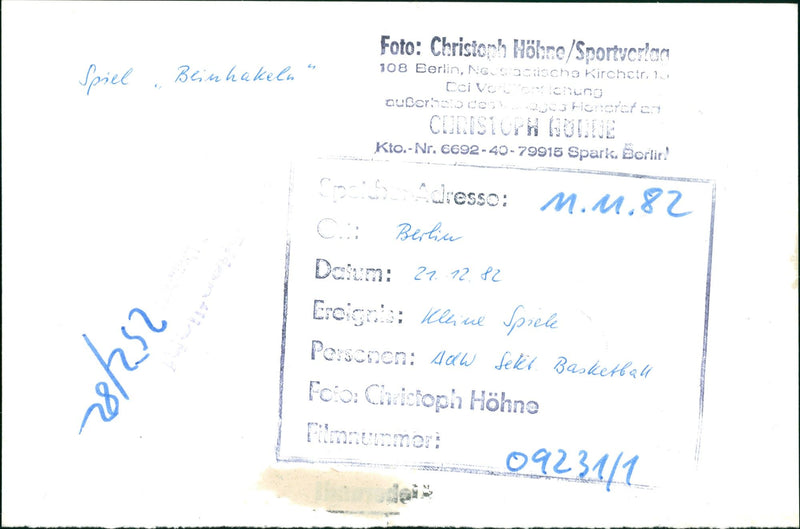 Spiel „Beinhakeln“
Foto: Christoph Höhne/Sportverlag
108 Berlin, Neustädtische Kirchstr. 15
Bei Veröffentlichung
außerhalb des Verlages Honorar an
CHRISTOPH HÖHNE
Kto.-Nr. 6692-40-79915 Spark. Berlin
Speicher-Adresse: 11.11.82
Ort: Berlin
Datum: 21.12.82
Ereignis: Kleine Spiele
Personen: AdW Sekt. Basketball
Foto: Christoph Höhne
Filmnummer: 09231/1
28/252